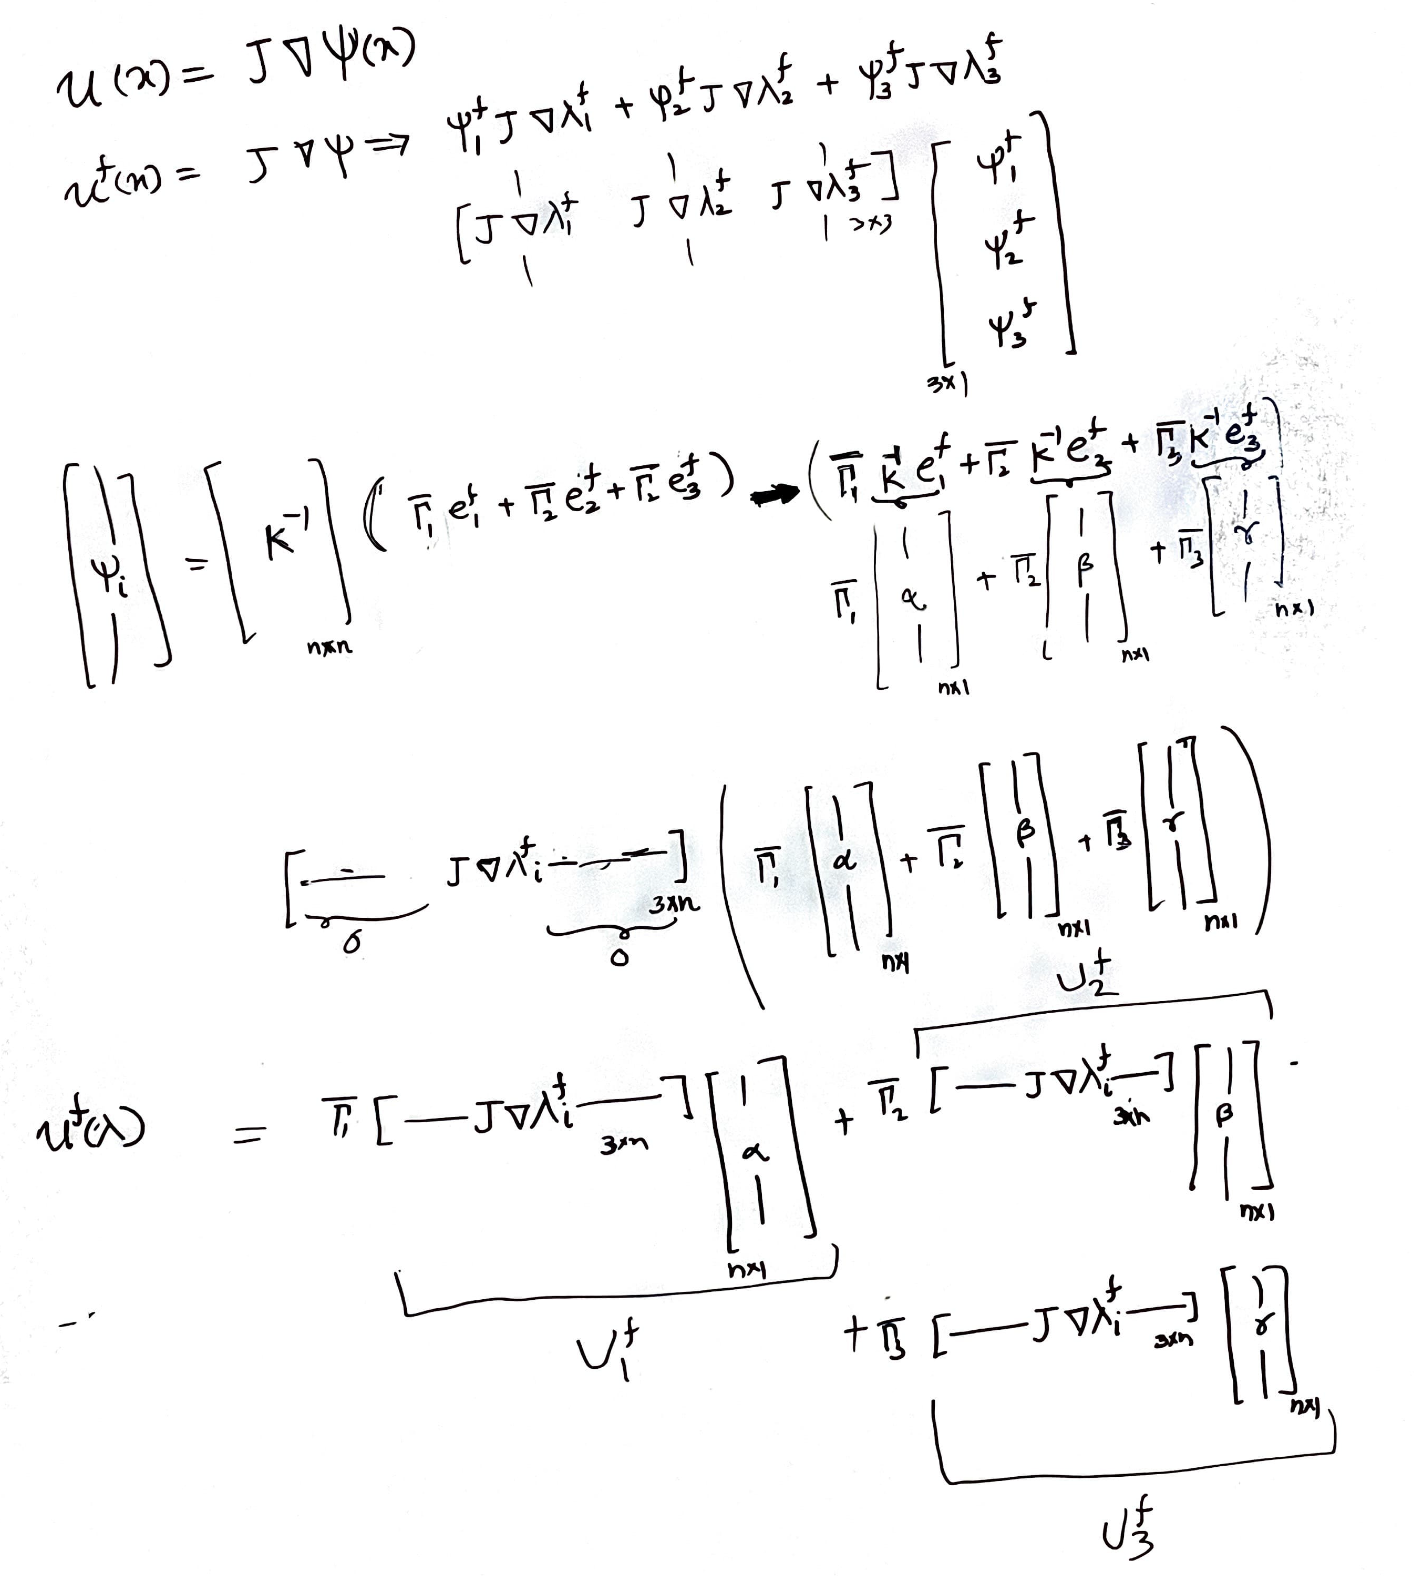 u(x) = J∇ψ(x)
u^f(x) = J∇ψ ⇒ ψ₁^f J∇λ₁^f + ψ₂^f J∇λ₂^f + ψ₃^f J∇λ₃^f
[J∇λ₁^f J∇λ₂^f J∇λ₃^f]₃ₓ₃ [ψ₁^f ψ₂^f ψ₃^f]
3×1
[ψᵢ] = [K⁻¹] n×n (Γ̅₁ e₁^f + Γ̅₂ e₂^f + Γ̅₂ e₃^f) → (Γ̅₁ K⁻¹ e₁^f + Γ̅₂ K⁻¹ e₂^f + Γ̅₃ K⁻¹ e₃^f)
Γ̅₁ [α] n×1 + Γ̅₂ [β] n×1 + Γ̅₃ [γ] n×1
[— J∇λᵢ^f —] 3×n (Γ̅₁ [α] n×1 + Γ̅₂ [β] n×1 + Γ̅₃ [γ] n×1)
0 0
U₂^f
u^f(x) = Γ̅₁ [— J∇λᵢ^f —] 3×n [α] n×1 + Γ̅₂ [— J∇λᵢ^f —] 3×n [β] n×1
U₁^f
+ Γ̅₃ [— J∇λᵢ^f —] 3×n [γ] n×1
U₃^f